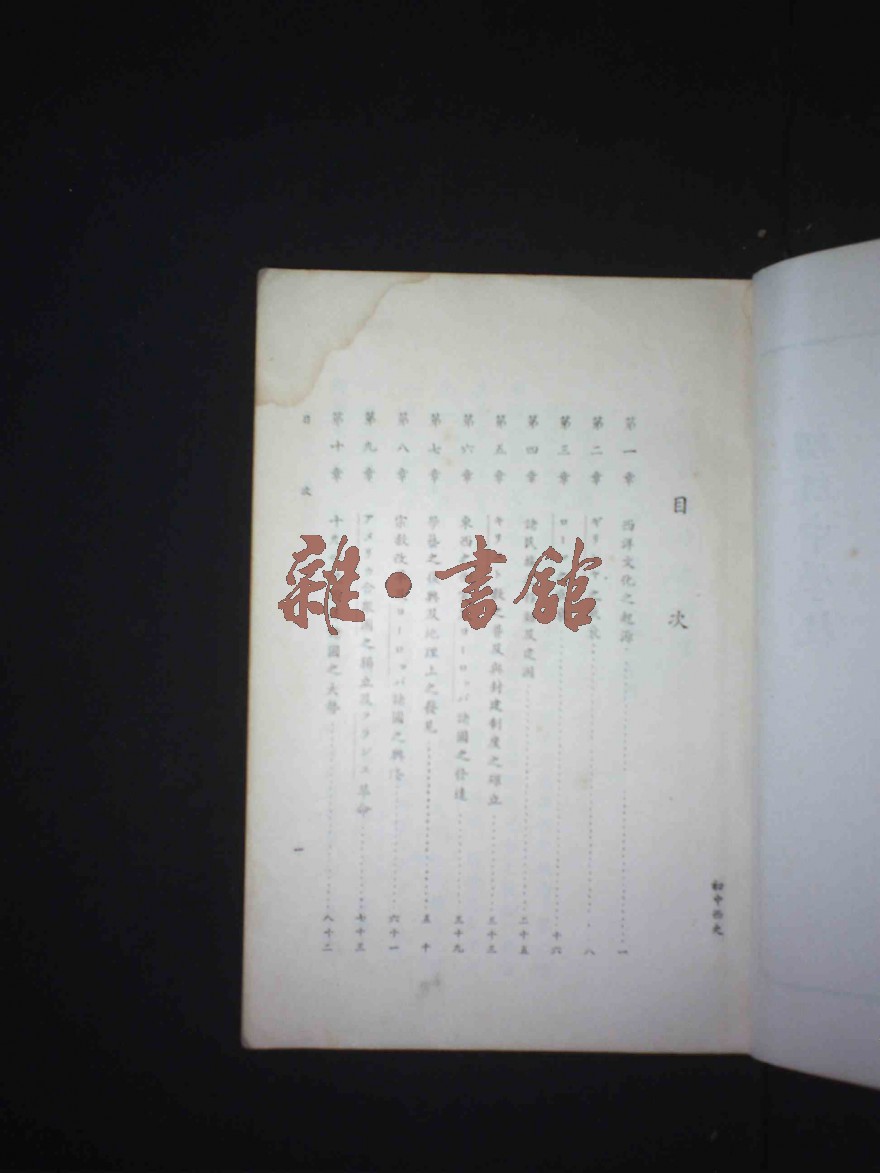 初中西史
目次
第一章 西洋文化之起源 一
第二章 ギリシヤ 八
第三章 ローマ 十六
第四章 諸民族 及建國 二十五
第五章 キリスト教之普及與封建制度之確立 三十三
第六章 東西之 ヨーロッパ諸國之發達 三十九
第七章 學藝之復興及地理上之發見 五十
第八章 宗教改革 ヨーロッパ諸國之興隆 六十一
第九章 アメリカ合衆國之獨立及フランス革命 七十三
第十章 十 國之大勢 八十二
目次
一
雜·書館